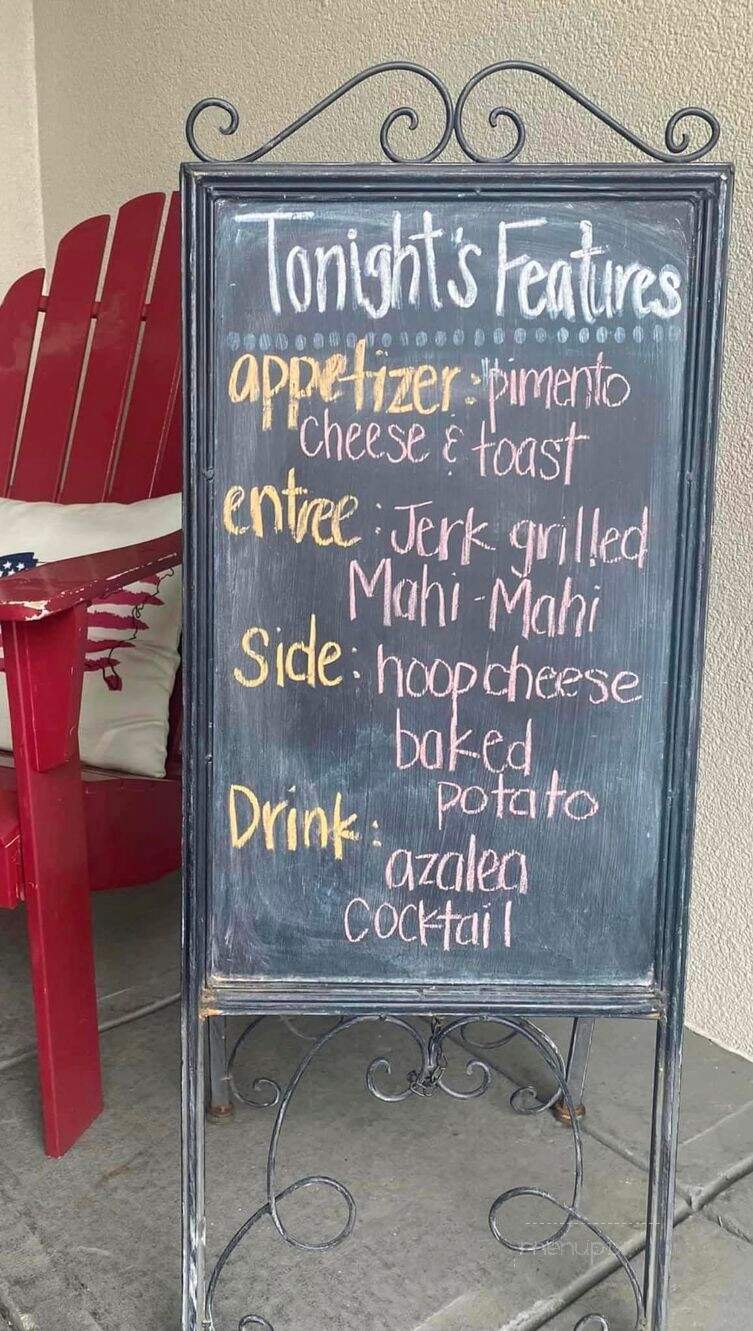 Tonight's Features
appetizer: pimento
cheese & toast
entree: Jerk grilled
Mahi-Mahi
Side: hoop cheese
baked
potato
Drink:
azalea
cocktail